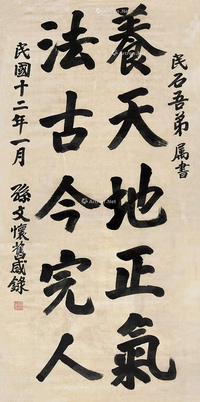 民石吾弟属書
養天地正氣
法古今完人
民國十二年一月
孫文懷舊感錄